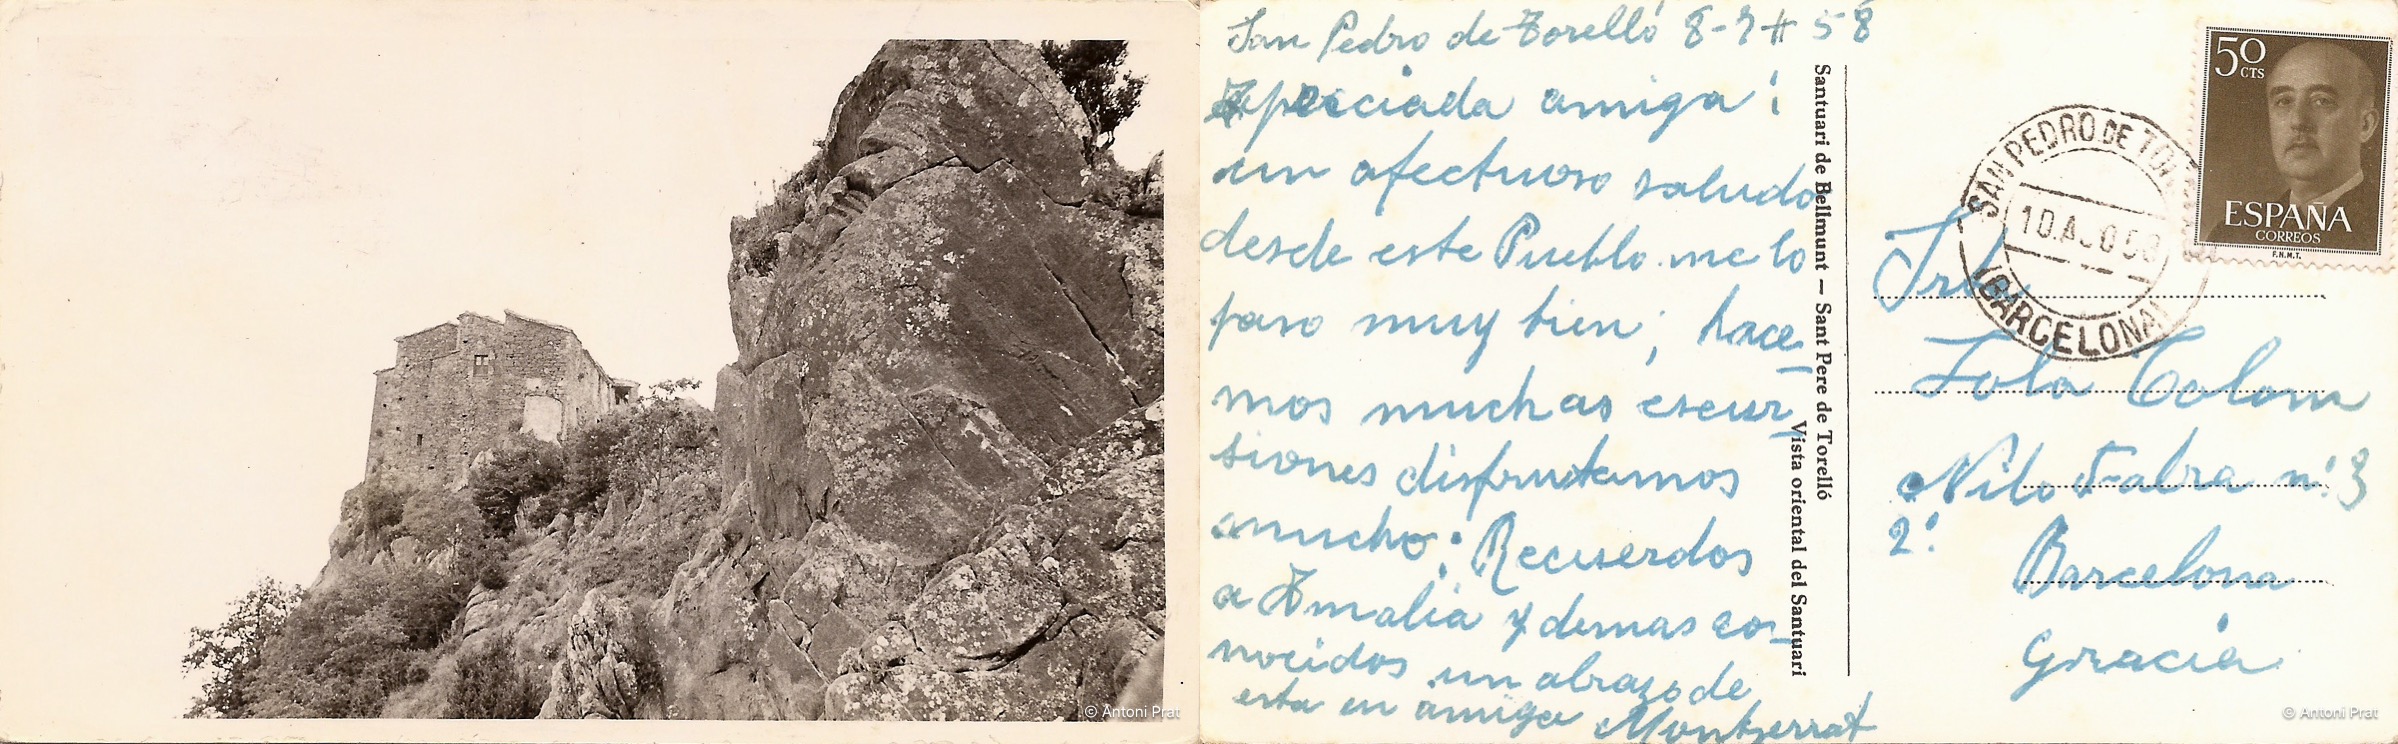 San Pedro de Torelló 8-7-58
Apreciada amiga:
un afectuoso saludo
desde este Pueblo me lo
paso muy bien, hace-
mos muchas escur-
siones disfrutamos
mucho: Recuerdos
a Amalia y demas co-
nocidos un abrazo de
esta tu amiga Montserrat
Santuari de Bellmunt — Sant Pere de Torelló
Vista oriental del Santuari
50 CTS
ESPAÑA
CORREOS
F.N.M.T.
SAN PEDRO DE TOR
(BARCELONA)
Srta
Lola Colom
Nilo Fabra nº 3
2º
Barcelona
Gracia
© Antoni Prat
© Antoni Prat